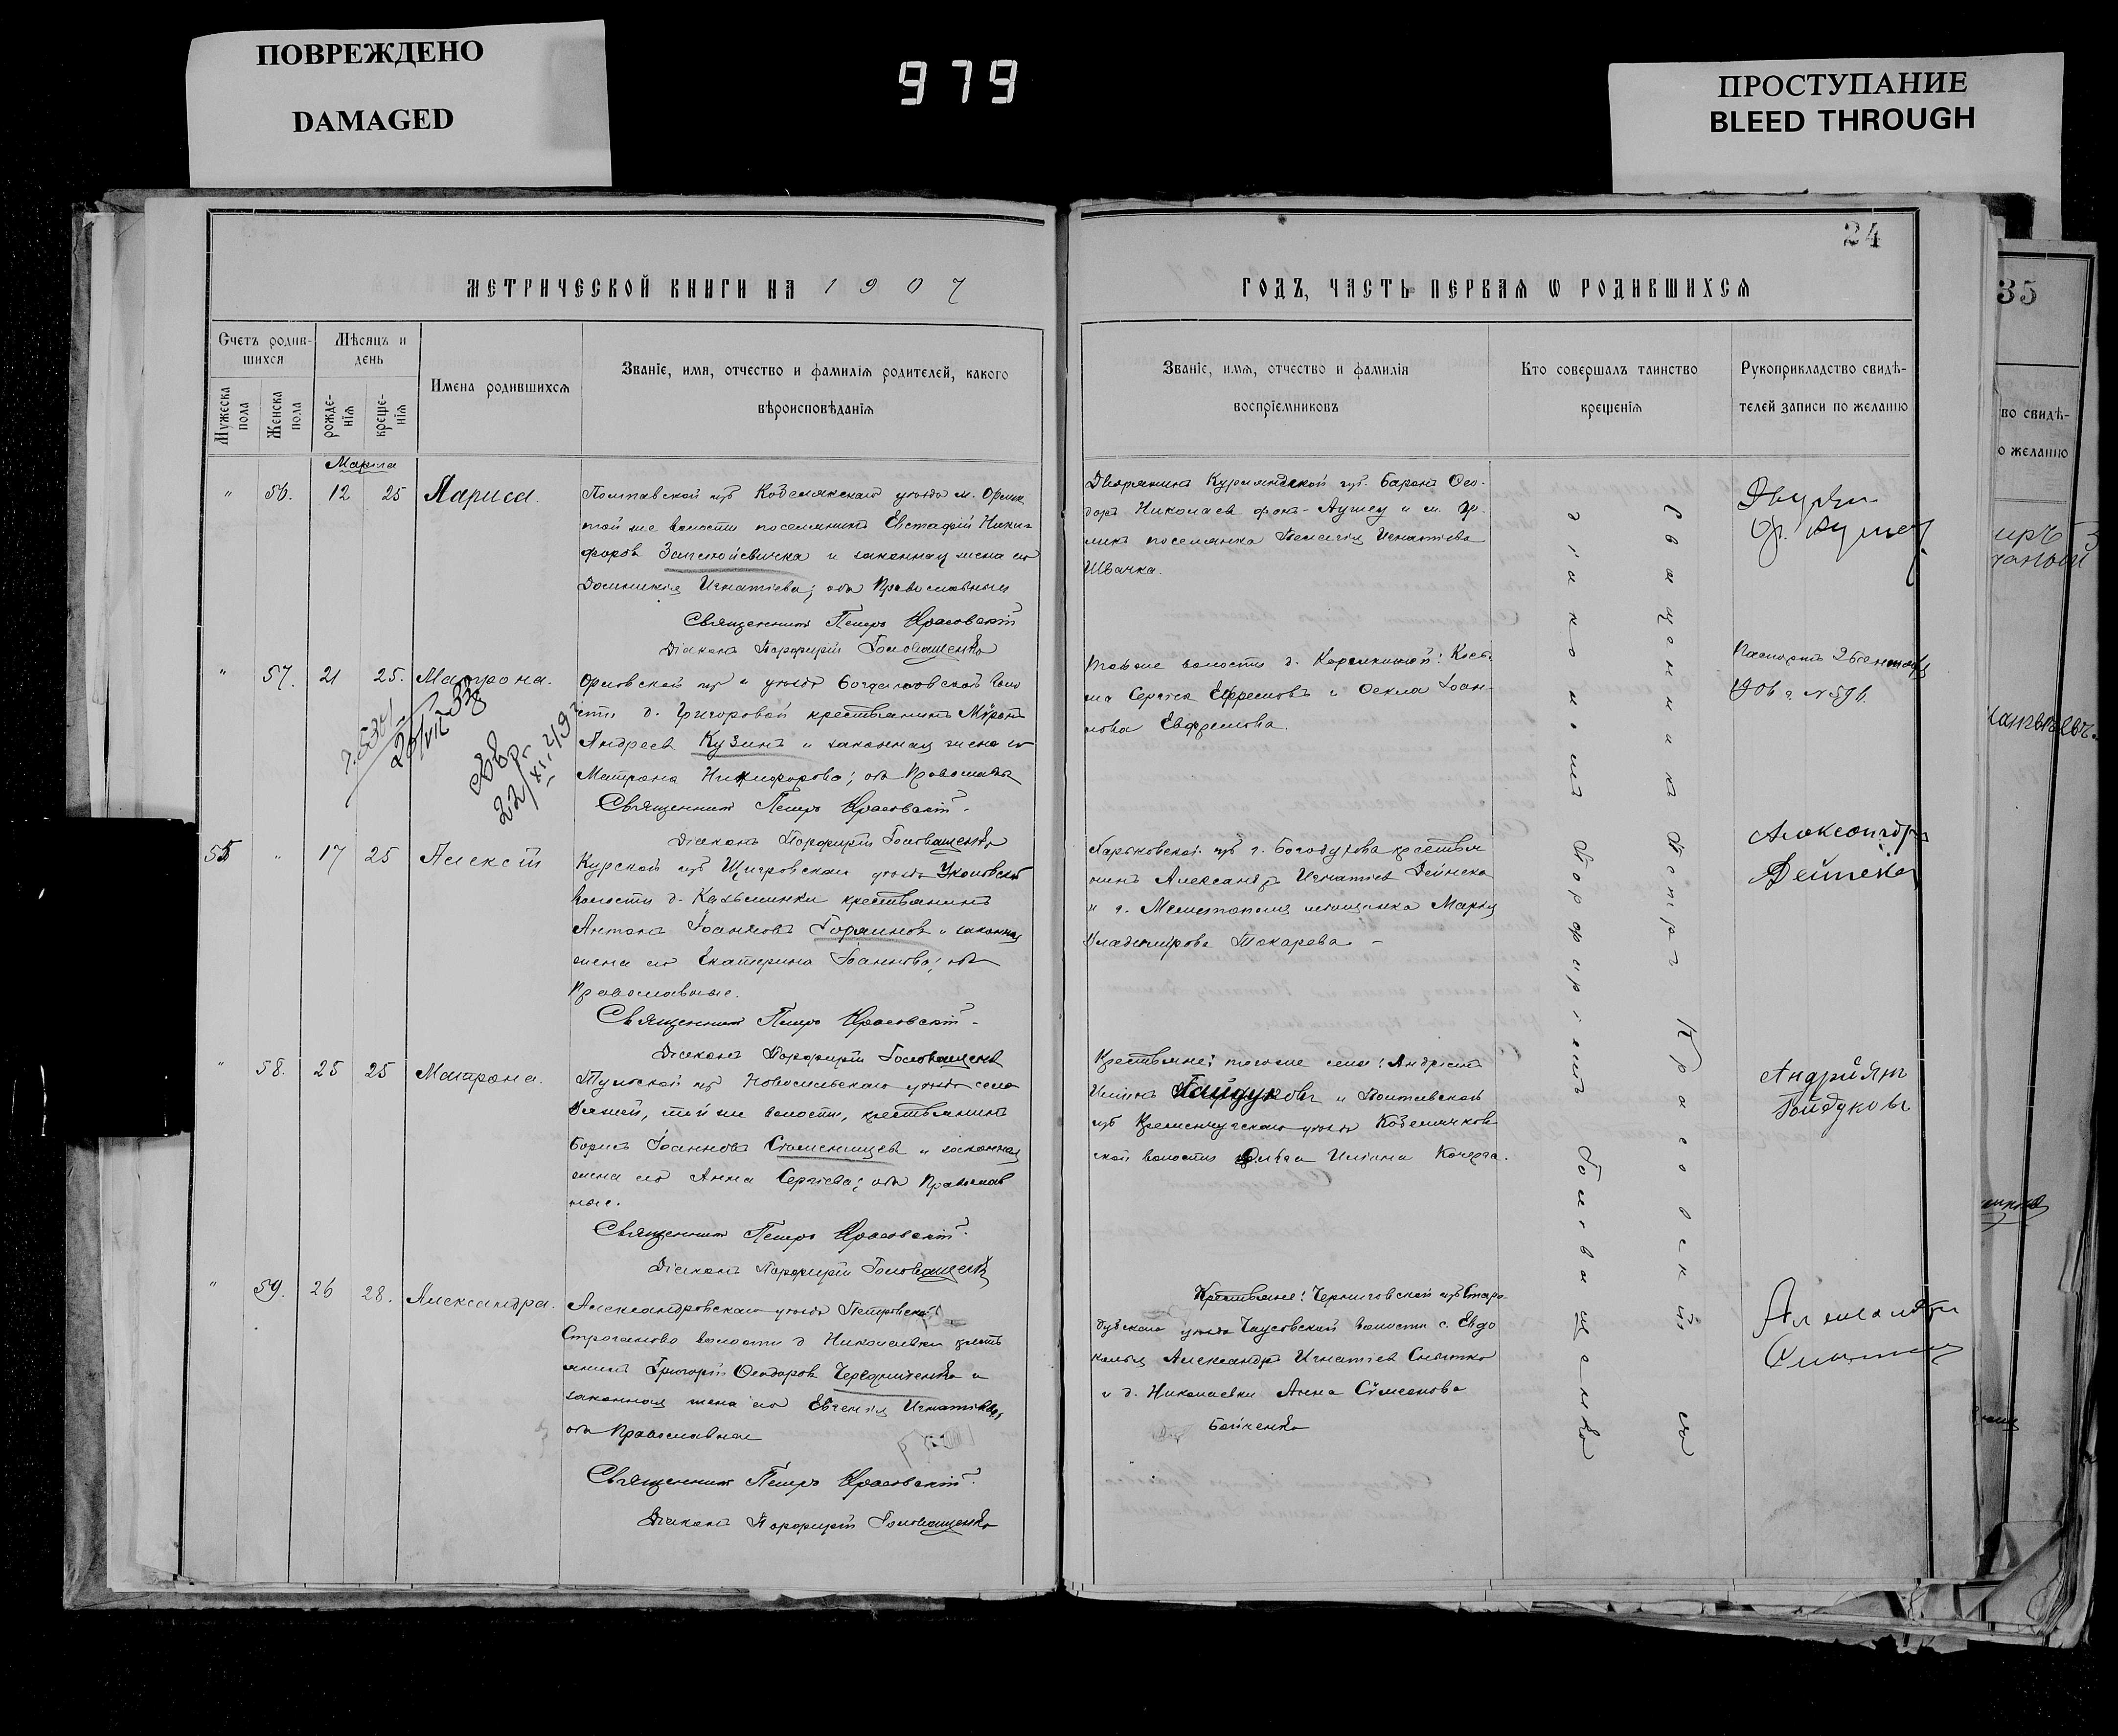 ПОВРЕЖДЕНО
DAMAGED
979
ПРОСТУПАНИЕ
BLEED THROUGH
24
35
МЕТРИЧЕСКОЙ КНИГИ НА 1907
ГОДЪ, ЧАСТЬ ПЕРВАЯ Ѡ РОДИВШИХСЯ
Счетъ родив-
шихся
Мужеска пола
Женска пола
Мѣсяцъ и
день
рожде-
нія
креще-
нія
Имена родившихся
Званіе, имя, отчество и фамилія родителей, какого
вѣроисповѣданія
Званіе, имя, отчество и фамилія
воспріемниковъ
Кто совершалъ таинство
крещенія
Рукоприкладство свидѣ-
телей записи по желанію
во свидѣ-
о желанію
Марта
" 56. 12 25 Лариса.
Полтавской губ Кобелякскаго уѣзда м. Орлик
той же волости поселянинъ Евстафій Ники-
форовъ и законная жена его
Домникія Игнатіева; оба Православные
Священникъ Петръ Красовскій
Діаконъ Порфирій Головащенко
Дворянинъ Курляндской губ. Баронъ Ѳео-
доръ Николаевъ фонъ- и м. Ор-
ликъ поселянка Пелагія Игнатіева
Швачка.
" 57. 21 25. Матрона.
Орловской губ и уѣзда Богдановской воло
сти д. Григоровой крестьянинъ Мѵронъ
Андреевъ Кузинъ и законная жена его
Матрона Никифорова; оба Православн
Священникъ Петръ Красовскій.
Діаконъ Порфирій Головащенко
20/VII 38
22/XI-49
волости д.
ма Сергѣевъ Ефремовъ и Ѳекла Іоан-
нова Евфремова.
Паспортъ
1906 г. №
55 " 17 25 Алексій
Курской губ Щигровскаго уѣзда
волости д. крестьянинъ
Антонъ Іоанновъ Горяиновъ и законная
жена его Екатерина Іоаннова; оба
Православные.
Священникъ Петръ Красовскій.
Діаконъ Порфирій Головащенко
Харьковской губ г. Богодухова крестьян
нинъ Александръ Игнатіевъ Дейнека
и г. Мелитополя мѣщанка Марія
Владимірова Токарева. -
Александръ
Дейнека
" 58. 25 25 Матрона.
Тульской губ Новосильскаго уѣзда села
Вяжей, той же волости, крестьянинъ
Борисъ Іоанновъ и законная
жена его Анна Сергіева; оба Православ
ные.
Священникъ Петръ Красовскій.
Діаконъ Порфирій Головащенко
Крестьяне: того же села: Андріанъ
Гайдуковъ и Полтавской
губ Кременчугскаго уѣзда
ской волости Ильина Кочерга.
Андриянъ
Гайдуковъ
" 59. 26 28. Александра.
Александровскаго уѣзда Петровской
Строганово волости д Николаевки кресть
янинъ Григорій Ѳеодоровъ Чередниченко и
законная жена его Евгенія Игнатіева;
оба Православные
Священникъ Петръ Красовскій.
Діаконъ Порфирій Головащенко
Крестьяне: Черниговской губ Старо-
дубскаго уѣзда волости с. Евдо
Александръ Игнатіевъ Снытко
и д. Николаевки Анна Сѵмеонова
Бойченко
Священникъ Петръ Красовскій съ
діакономъ Порфиріемъ Головащенко